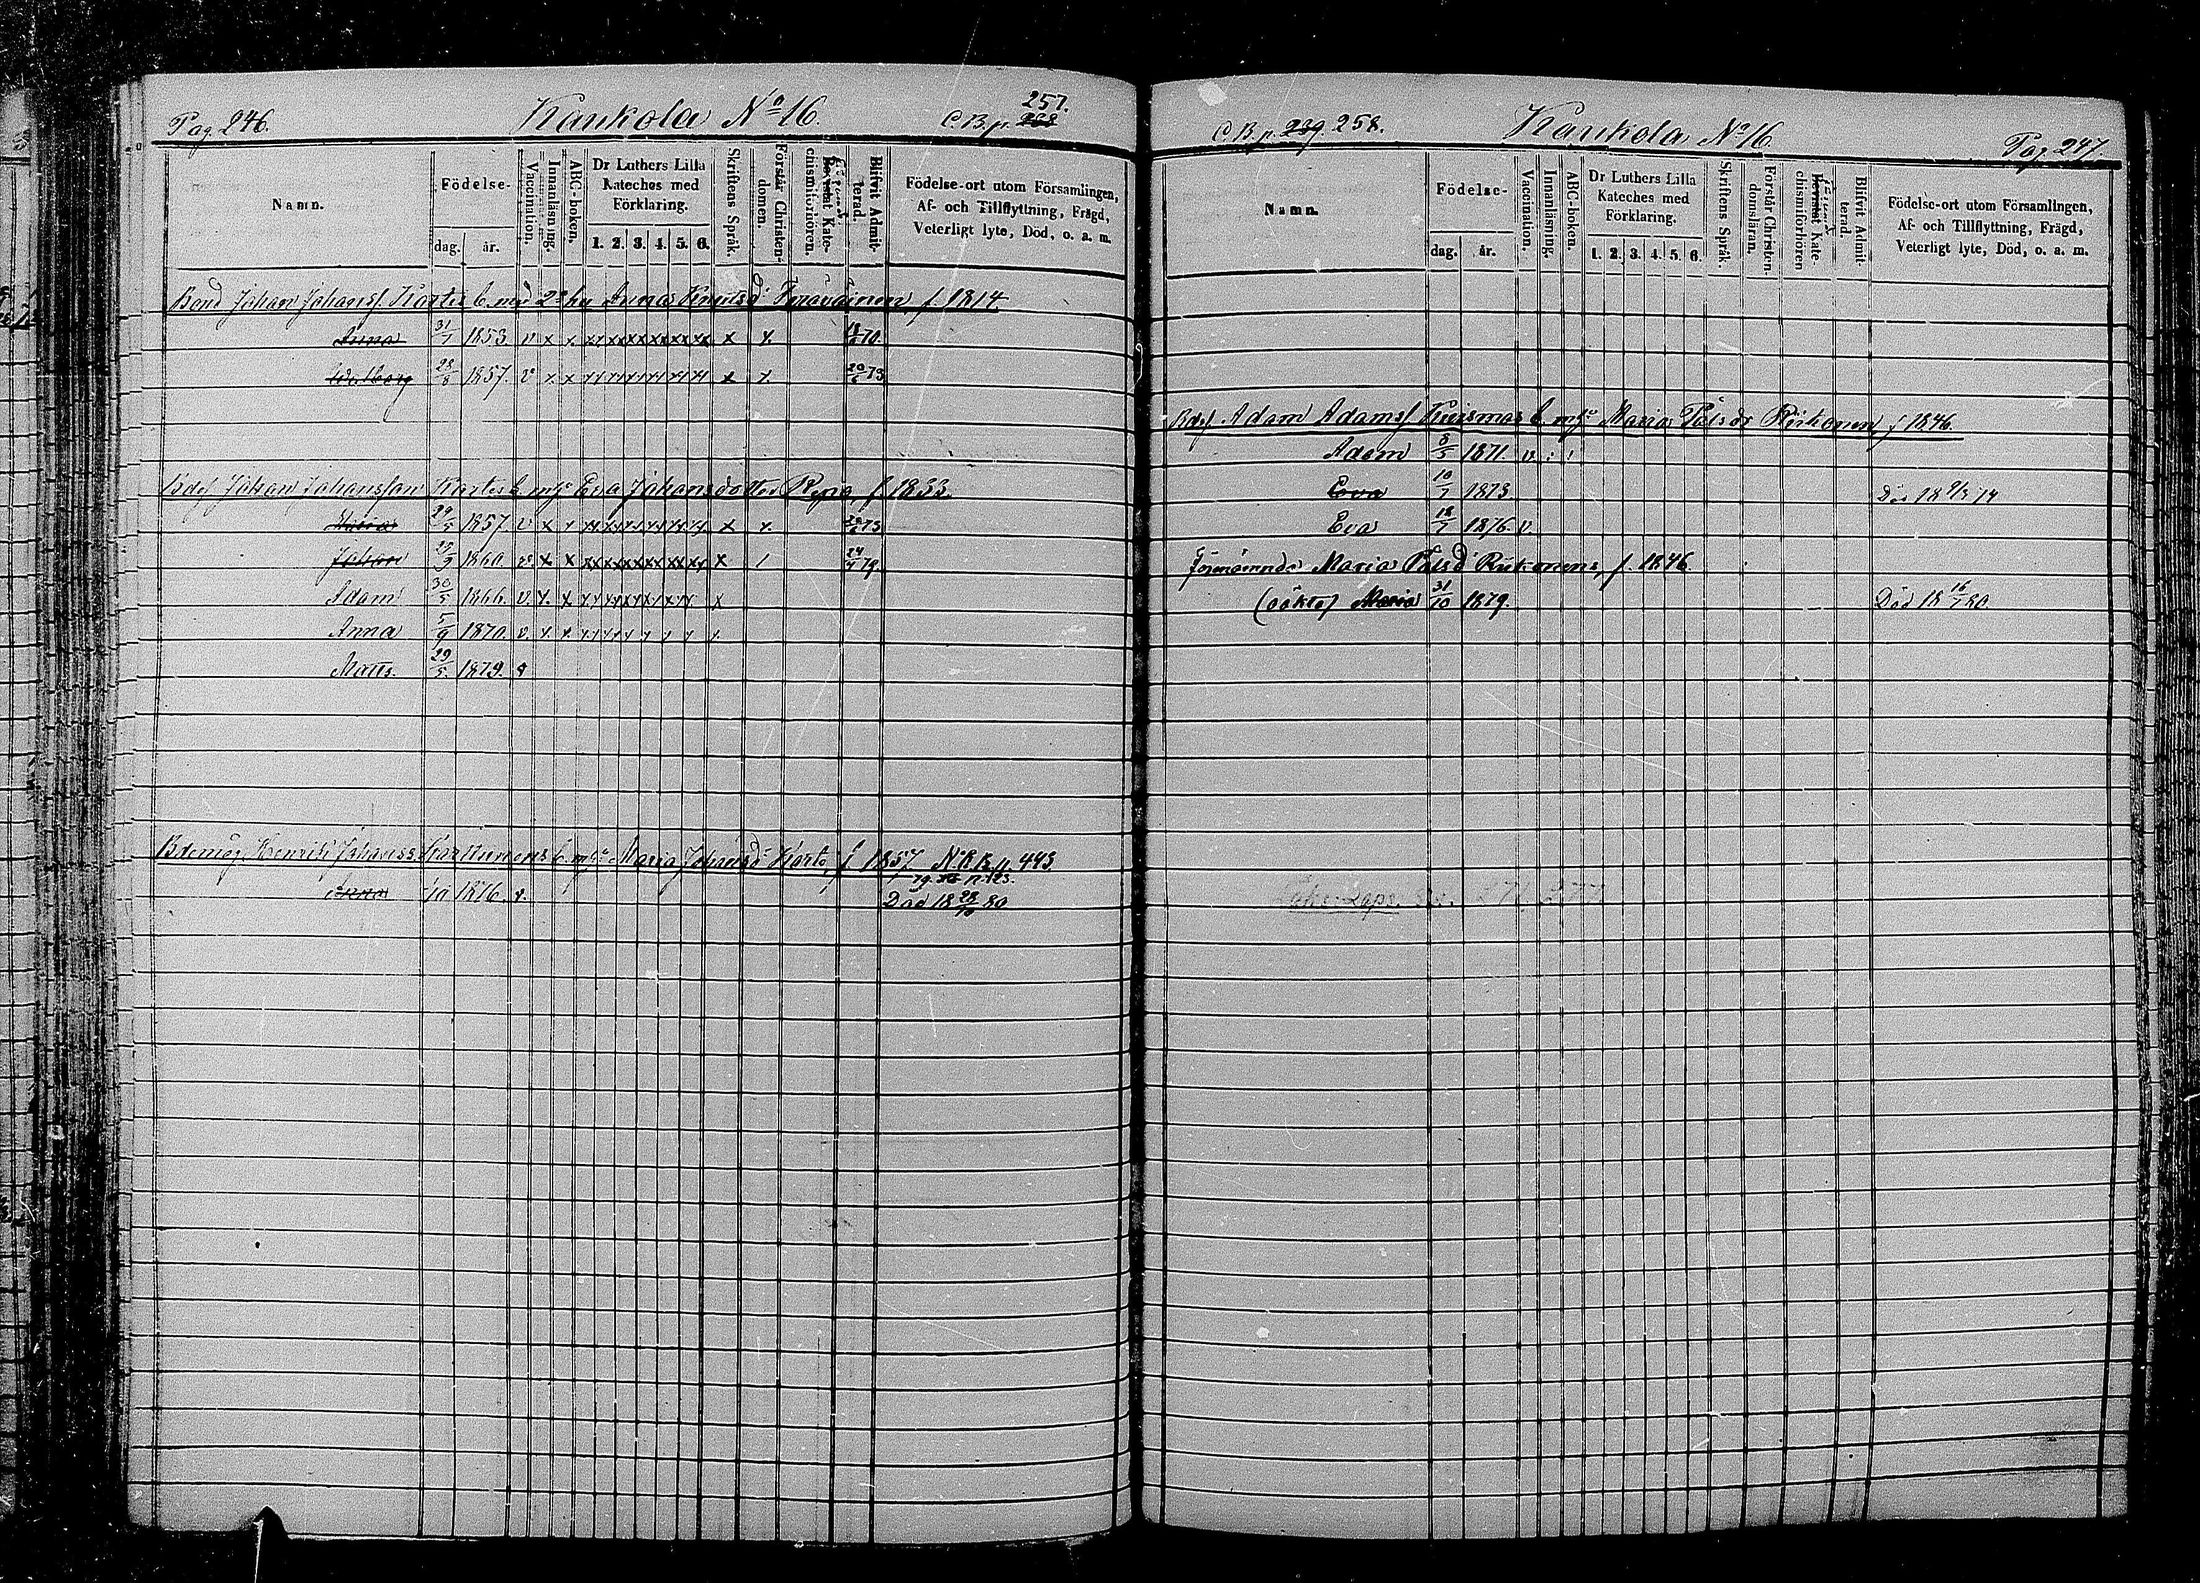 Pag 246. Kaukola No 16. C.B.p. 238 257.
Namn. Födelse- dag. år. Vaccination. Innanläsning. ABC-boken. Dr Luthers Lilla Kateches med Förklaring. 1. 2. 3. 4. 5. 6. Skriftens Språk. Förstår Christendomen. Bevistat Katechismiförhören. Blifvit Admitterad. Födelse-ort utom Församlingen, Af- och Tillflyttning, Frägd, Veterligt lyte, Död, o. a. m.
Bond Johan Johanss. Kortes b. med 2a hu Anna Knutsd. f. 1814
Anna 31/7 1853 v x x x x x x x x x x 70.
Walborg 28/8 1857. v x x x x 20/6 73
Bdes Johan Johansson Kortes b. m h Eva Johansdotter Repo, f 1833.
Maria 29/5 1857 v x x x x 73
Johan 25/9 1860. v x x x 24/4 79
Adam 30/5 1866. v. x. x x
Anna 5/9 1870. v. x x. x
Matts. 29/5 1879. v
Bdemåg Henrik Johanss. Karhunens b. m h Maria Johansd. Korte, f 1857 N.K.B. p. 443.
p. 123.
Anna 1876. v. Död 18 28/10 80
C.B.p. 239 258. Kaukola No 16. Pag 247.
Namn. Födelse- dag. år. Vaccination. Innanläsning. ABC-boken. Dr Luthers Lilla Kateches med Förklaring. 1. 2. 3. 4. 5. 6. Skriftens Språk. Förstår Christendomsläran. Bevistat Katechismiförhören Blifvit Admitterad. Födelse-ort utom Församlingen, Af- och Tillflyttning, Frägd, Veterligt lyte, Död, o. a. m.
Bdes Adam Adamss Kuismas b. m h Maria Pålsdr f 1846.
Adam 8/5 1871. v.
Eva 10/7 1873 Dör 18 9/3 74
Eva 18/7 1876 v.
Förenämnde Maria Pålsd. f. 1846.
(oäkta) Maria 31/10 1879. Död 18 16/7 80